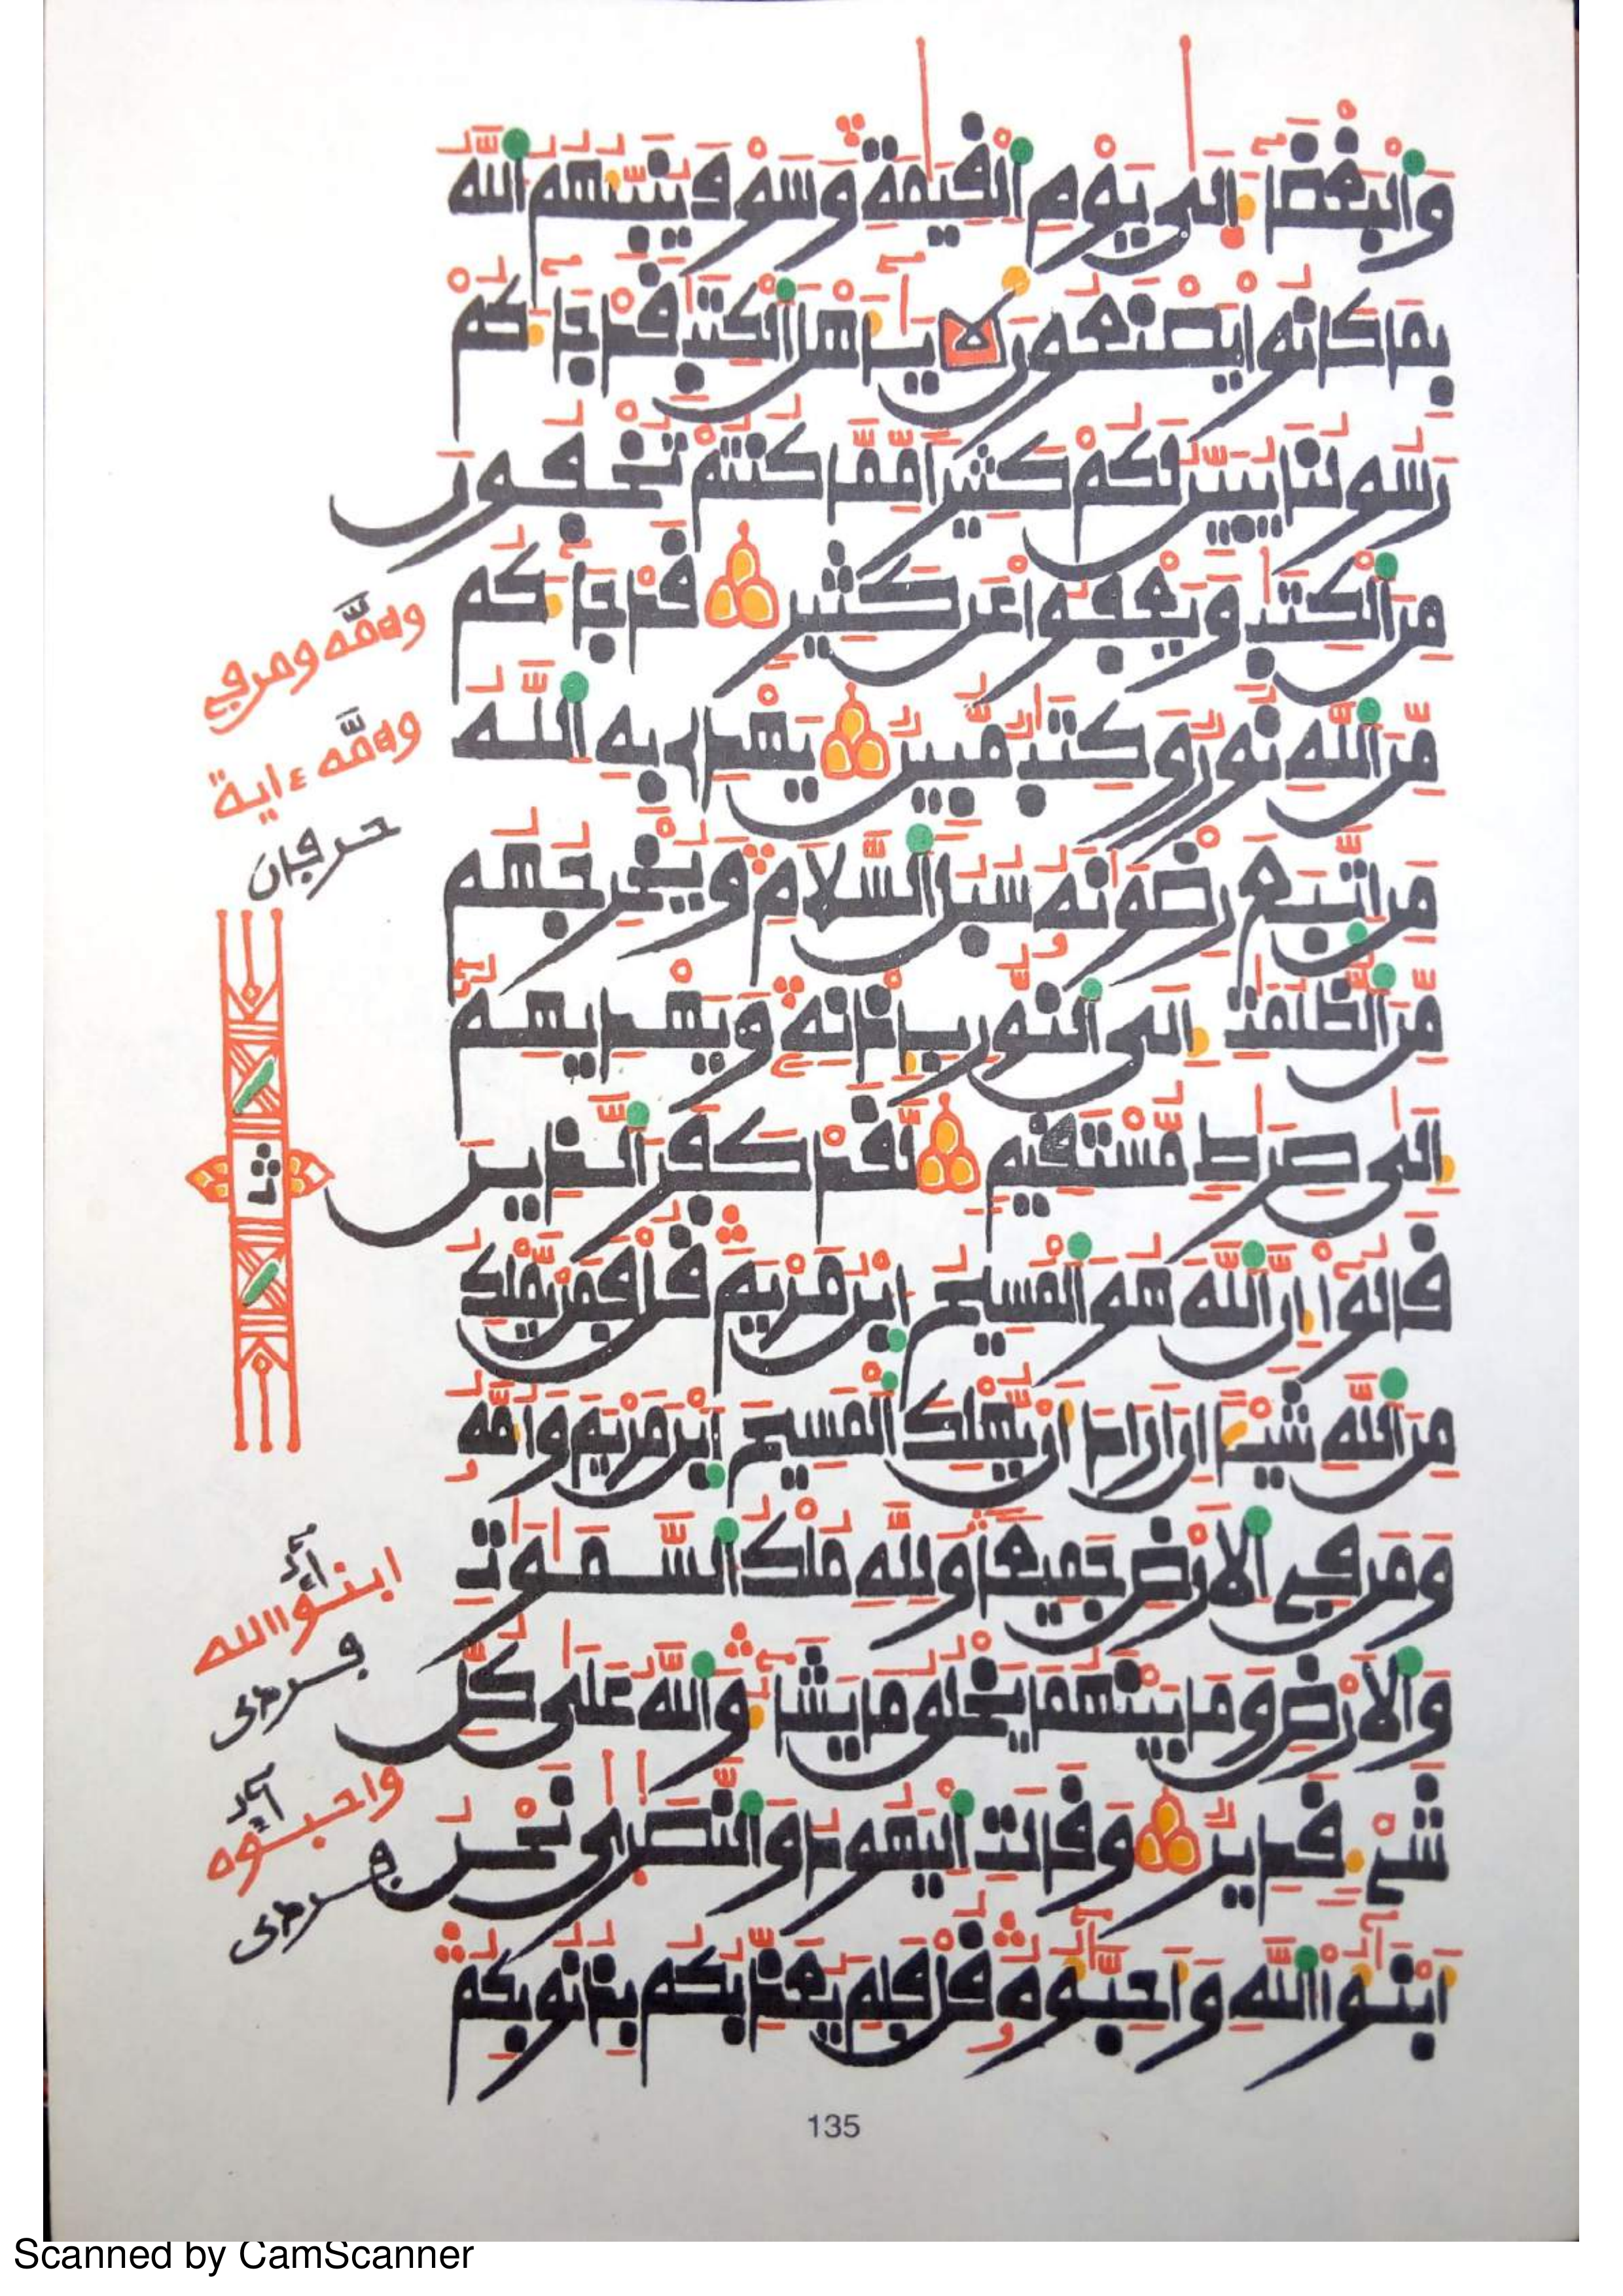 وَالْبَغْضَآءَ اِلَىٰ يَوْمِ الْقِيَٰمَةِ وَسَوْفَ يُنَبِّئُهُمُ اللَّهُ
بِمَا كَانُوا يَصْنَعُونَ لا يَٰٓأَهْلَ الْكِتَٰبِ قَدْ جَآءَكُمْ
رَسُولُنَا يُبَيِّنُ لَكُمْ كَثِيرًا مِّمَّا كُنْتُمْ تُخْفُونَ
مِنَ الْكِتَٰبِ وَيَعْفُوا عَن كَثِيرٍ قَدْ جَآءَكُم
مِّنَ اللَّهِ نُورٌ وَكِتَٰبٌ مُّبِينٌ يَهْدِے بِهِ اللَّهُ
مَنِ اتَّبَعَ رِضْوَٰنَهُ سُبُلَ السَّلَامِ وَيُخْرِجُهُم
مِّنَ الظُّلُمَٰتِ اِلَى النُّورِ بِإِذْنِهِ وَيَهْدِيهِمُ
اِلَىٰ صِرَٰطٍ مُّسْتَقِيمٍ لَّقَدْ كَفَرَ الَّذِينَ
قَالُوٓا إِنَّ اللَّهَ هُوَ الْمَسِيحُ ابْنُ مَرْيَمَ قُلْ فَمَنْ يَّمْلِكُ
مِنَ اللَّهِ شَيْـًٔا اِنَ اَرَادَ أَنْ يُّهْلِكَ الْمَسِيحَ ابْنَ مَرْيَمَ وَأُمَّهُ
وَمَن فِي الَارْضِ جَمِيعًا وَلِلَّهِ مُلْكُ السَّمَٰوَٰتِ
وَالَارْضِ وَمَا بَيْنَهُمَا يَخْلُقُ مَا يَشَآءُ وَاللَّهُ عَلَىٰ كُلِّ
شَيْءٍ قَدِيرٌ وَقَالَتِ الْيَهُودُ وَالنَّصَٰرَىٰ نَحْنُ
أَبْنَٰٓؤُا اللَّهِ وَأَحِبَّٰٓؤُهُ قُلْ فَلِمَ يُعَذِّبُكُم بِذُنُوبِكُم
وامّه ومن في
وامّه ءاية
حرفان
ابنؤا الله
واحبؤه
135
Scanned by CamScanner